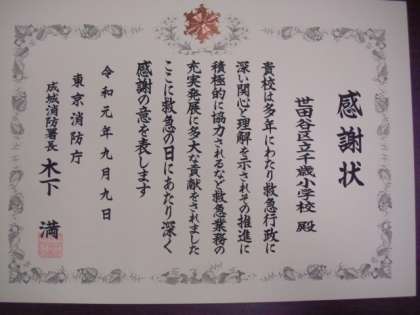 感謝状
世田谷区立千歳小学校 殿
貴校は多年にわたり救急行政に
深い関心と理解を示されその推進に
積極的に協力されるなど救急業務の
充実発展に多大な貢献をされました
ここに救急の日にあたり深く
感謝の意を表します
令和元年九月九日
東京消防庁
成城消防署長 木下 満